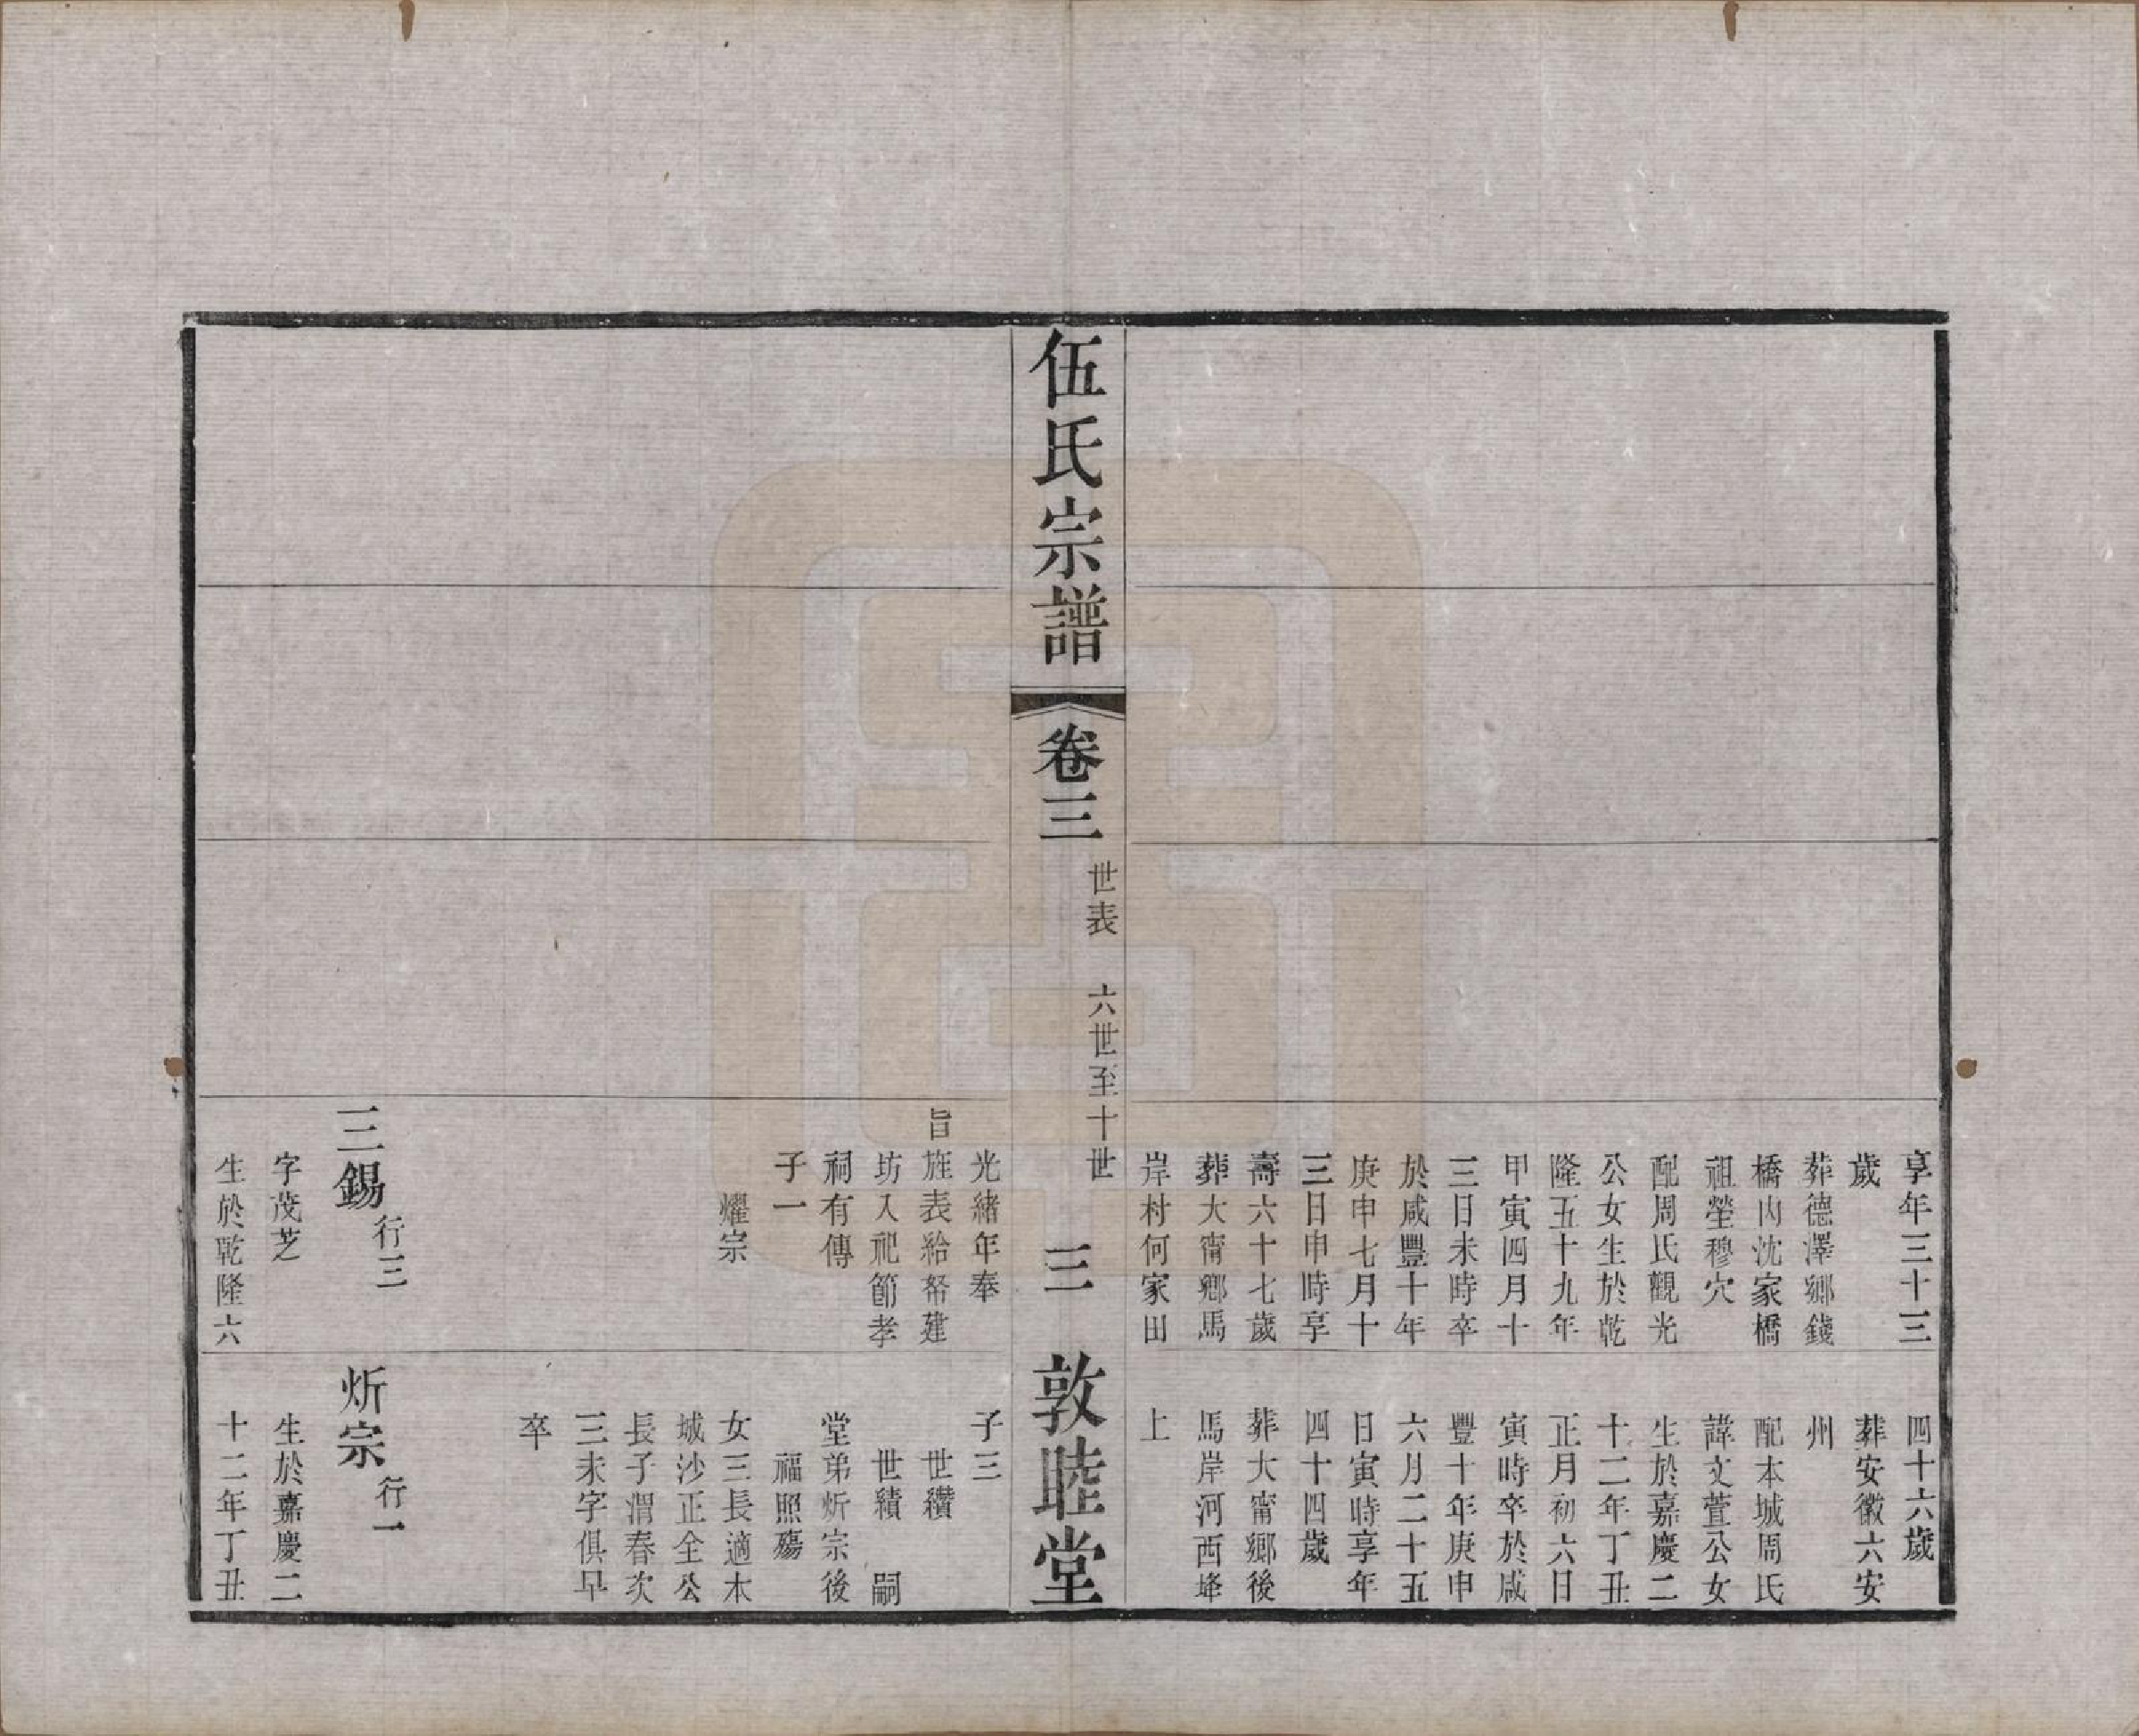 享年三十三
歲
葬德澤鄉錢
橋內沈家橋
祖塋穆穴
配周氏觀光
公女生於乾
隆五十九年
甲寅四月十
三日未時卒
於咸豐十年
庚申七月十
三日申時享
壽六十七歲
葬大甯鄉馬
岸村何家田
四十六歲
葬安徽六安
州
配本城周氏
諱文萱公女
生於嘉慶二
十二年丁丑
正月初六日
寅時卒於咸
豐十年庚申
六月二十五
日寅時享年
四十四歲
葬大甯鄉後
馬岸河西培
上
伍氏宗譜
卷三
世表 六世至十世
三
敦睦堂
光緒年奉
旨旌表給帑建
坊入祀節孝
祠有傳
子一
耀宗
子三
世纘
世績 嗣
堂弟炘宗後
福照殤
女三長適本
城沙正全公
長子渭春次
三未字俱早
卒
三錫 行三
字茂芝
生於乾隆六
炘宗 行一
生於嘉慶二
十二年丁丑